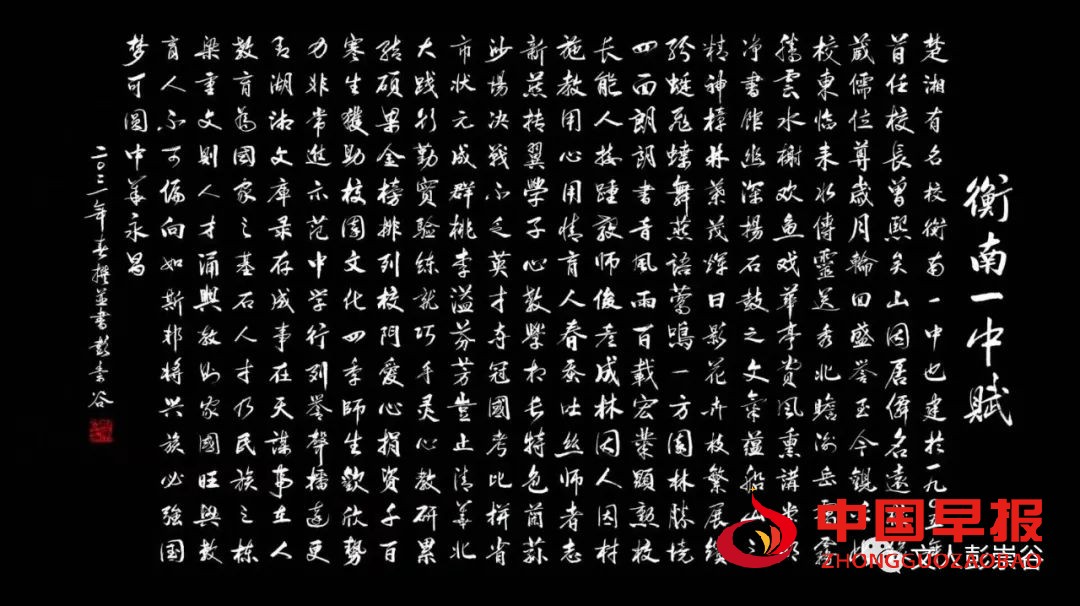 衡南一中賦
楚湘有名校衡南一中也建於一九〇五
首任校長曾熙矣山因居僻名遠
儒位尊歲月輪回盛譽
校東臨耒水傳靈送秀北瞻衡岳雲霧
騰雲水榭欢魚戏華亭賞風熏講堂明
净書館幽深揚石鼓之文氣蕴船山之
精神樟林葉茂輝日影花卉枝繁展繽
紛蜓飛蝶舞燕語鶯鳴一方園林勝境
四面朗朗書音風雨百載宏業顯勲校
長能人接踵教師俊彦成林因人因材
施教用心用情育人春蚕吐丝師者志
新燕抟翼學子心教學相長特色茴荪
沙場决戰不乏英才夺冠國考比拼省
市状元成群桃李溢芬芳豈止清華北
大践行勤實驗练就巧手灵心教研累
结碩果金榜排列校門爱心捐资千百
寒生獲助校園文化四季師生歡欣勢
力非常進示范中学行列譽聲播遠更
有湖湘文庫录存成事在天謀事在人
教育為國家之基石人才乃民族之栋
梁重文則人才涌興教則家國旺興教
育人不可偏向如斯邦將兴族必強國
梦可圆中華永昌
二〇二一年春撰并書彭崇谷
中国早报
ZHONGGUOZAOBAO
文人彭崇谷